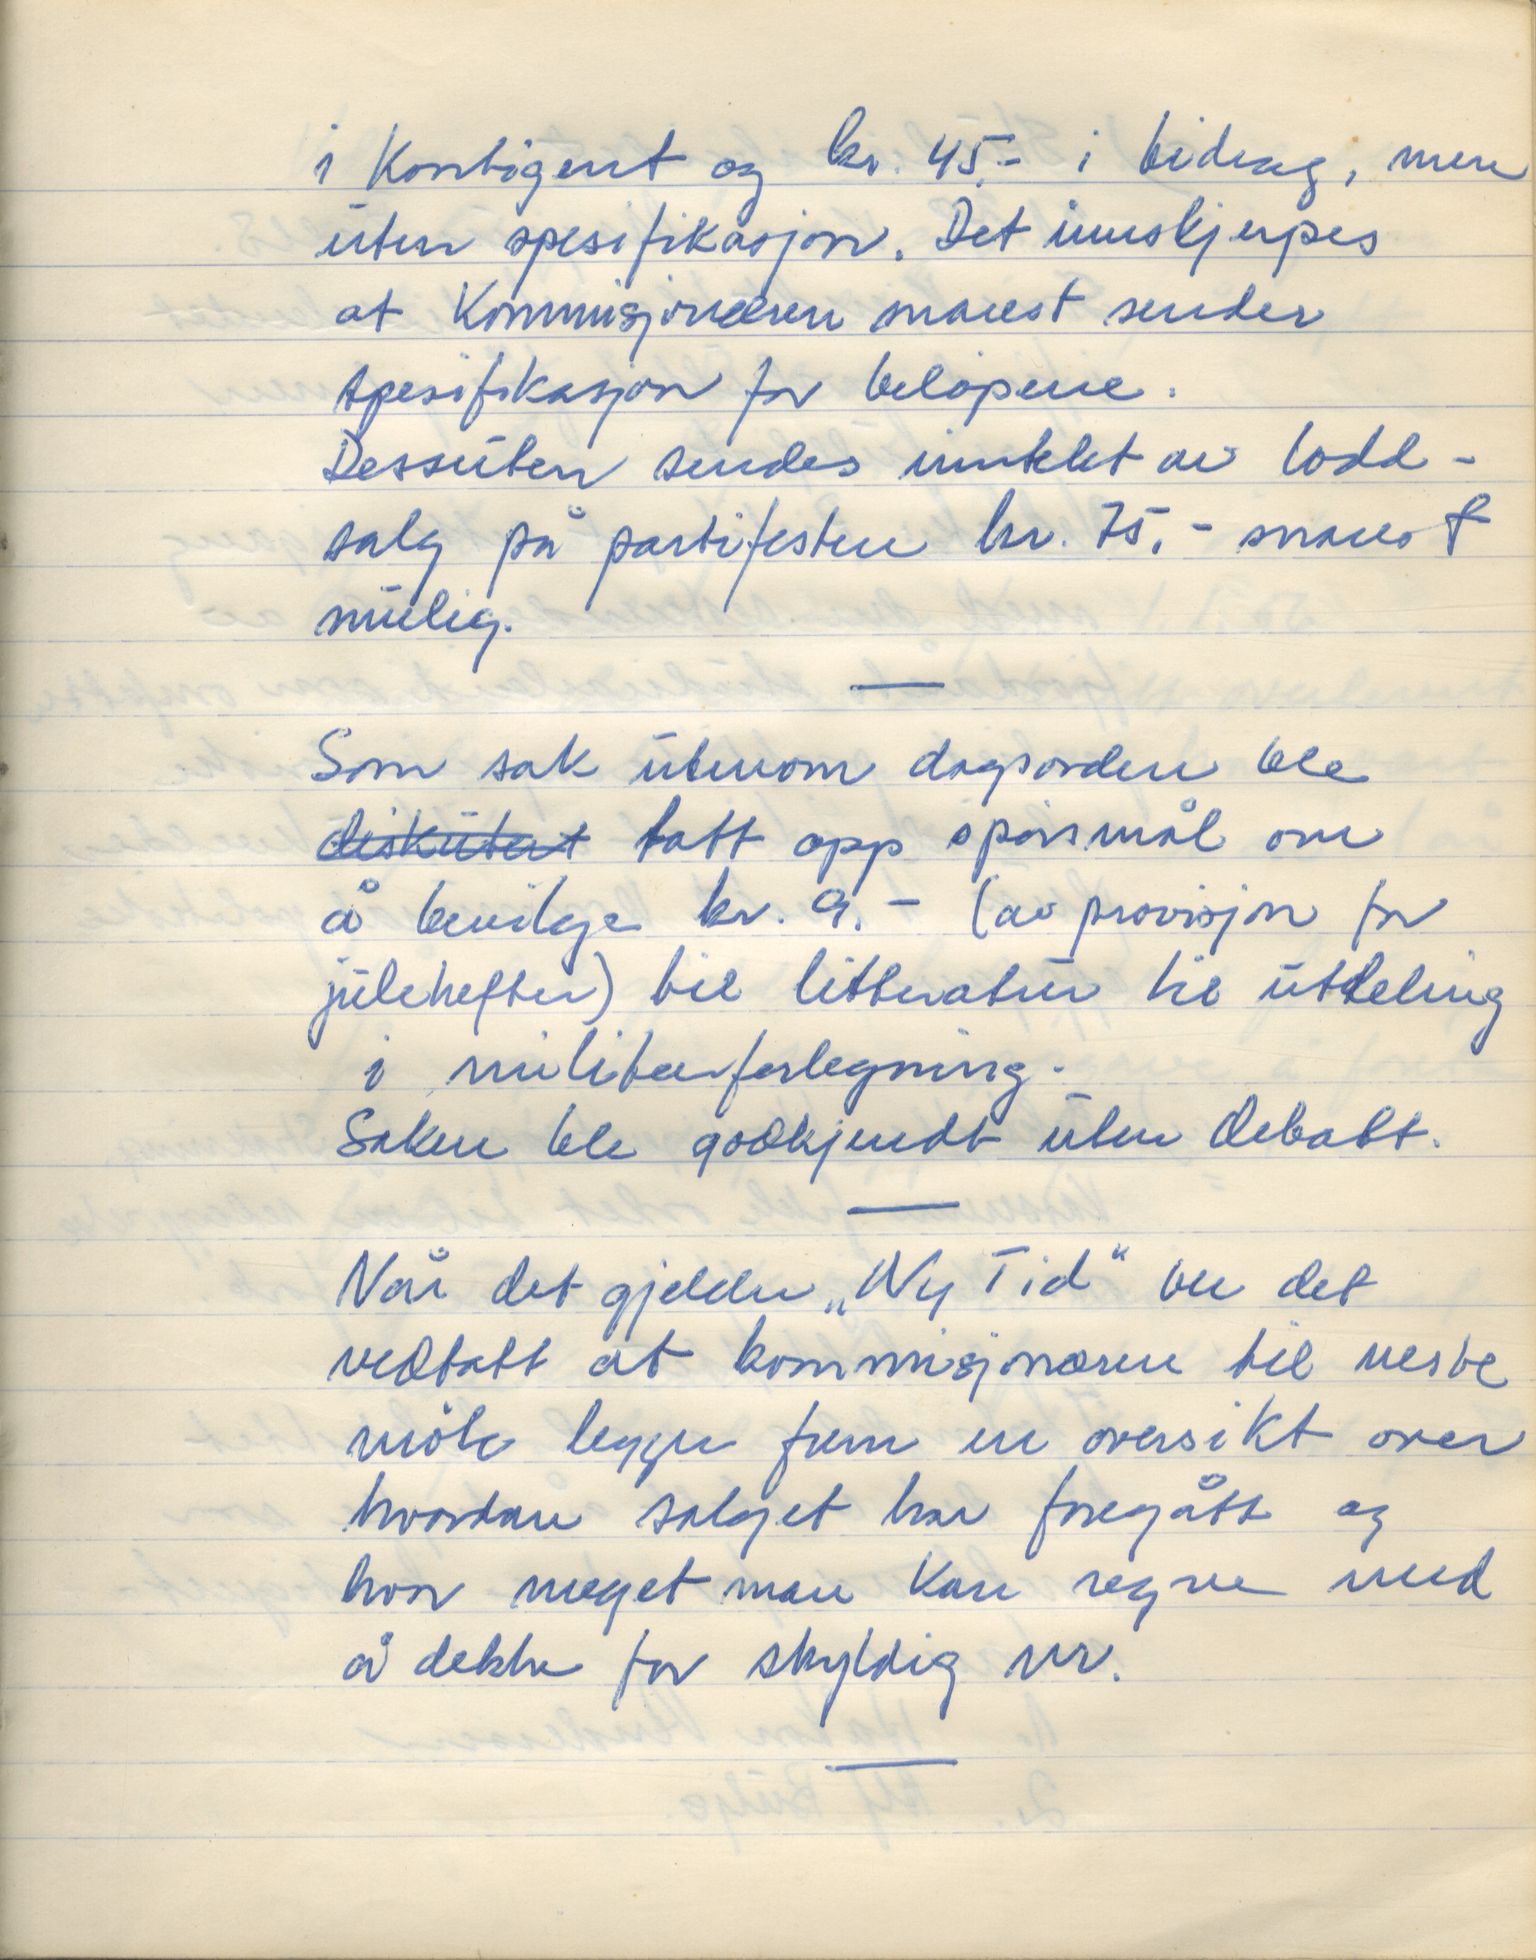 i Kontigent og kr. 45.- i bidrag, men
uten spesifikasjon. Det innskjerpes
at Kommisjonæren snarest sender
spesifikasjon for beløpene.
Dessuten sendes inntekt av lodd-
salg på partifesten kr. 75.- snarest
mulig.
Som sak utenom dagsorden ble
diskutert tatt opp spørsmål om
å bevilge kr. 9.- (av provisjon for
julehefter) til litteratur til utdeling
i militærforlegning.
Saken ble godkjendt uten debatt.
Når det gjelder „Ny Tid“ ble det
vedtatt at kommisjonæren til neste
møte legger frem en oversikt over
hvordan salget har foregått og
hvor meget man kan regne med
å dekke for skyldig nr.